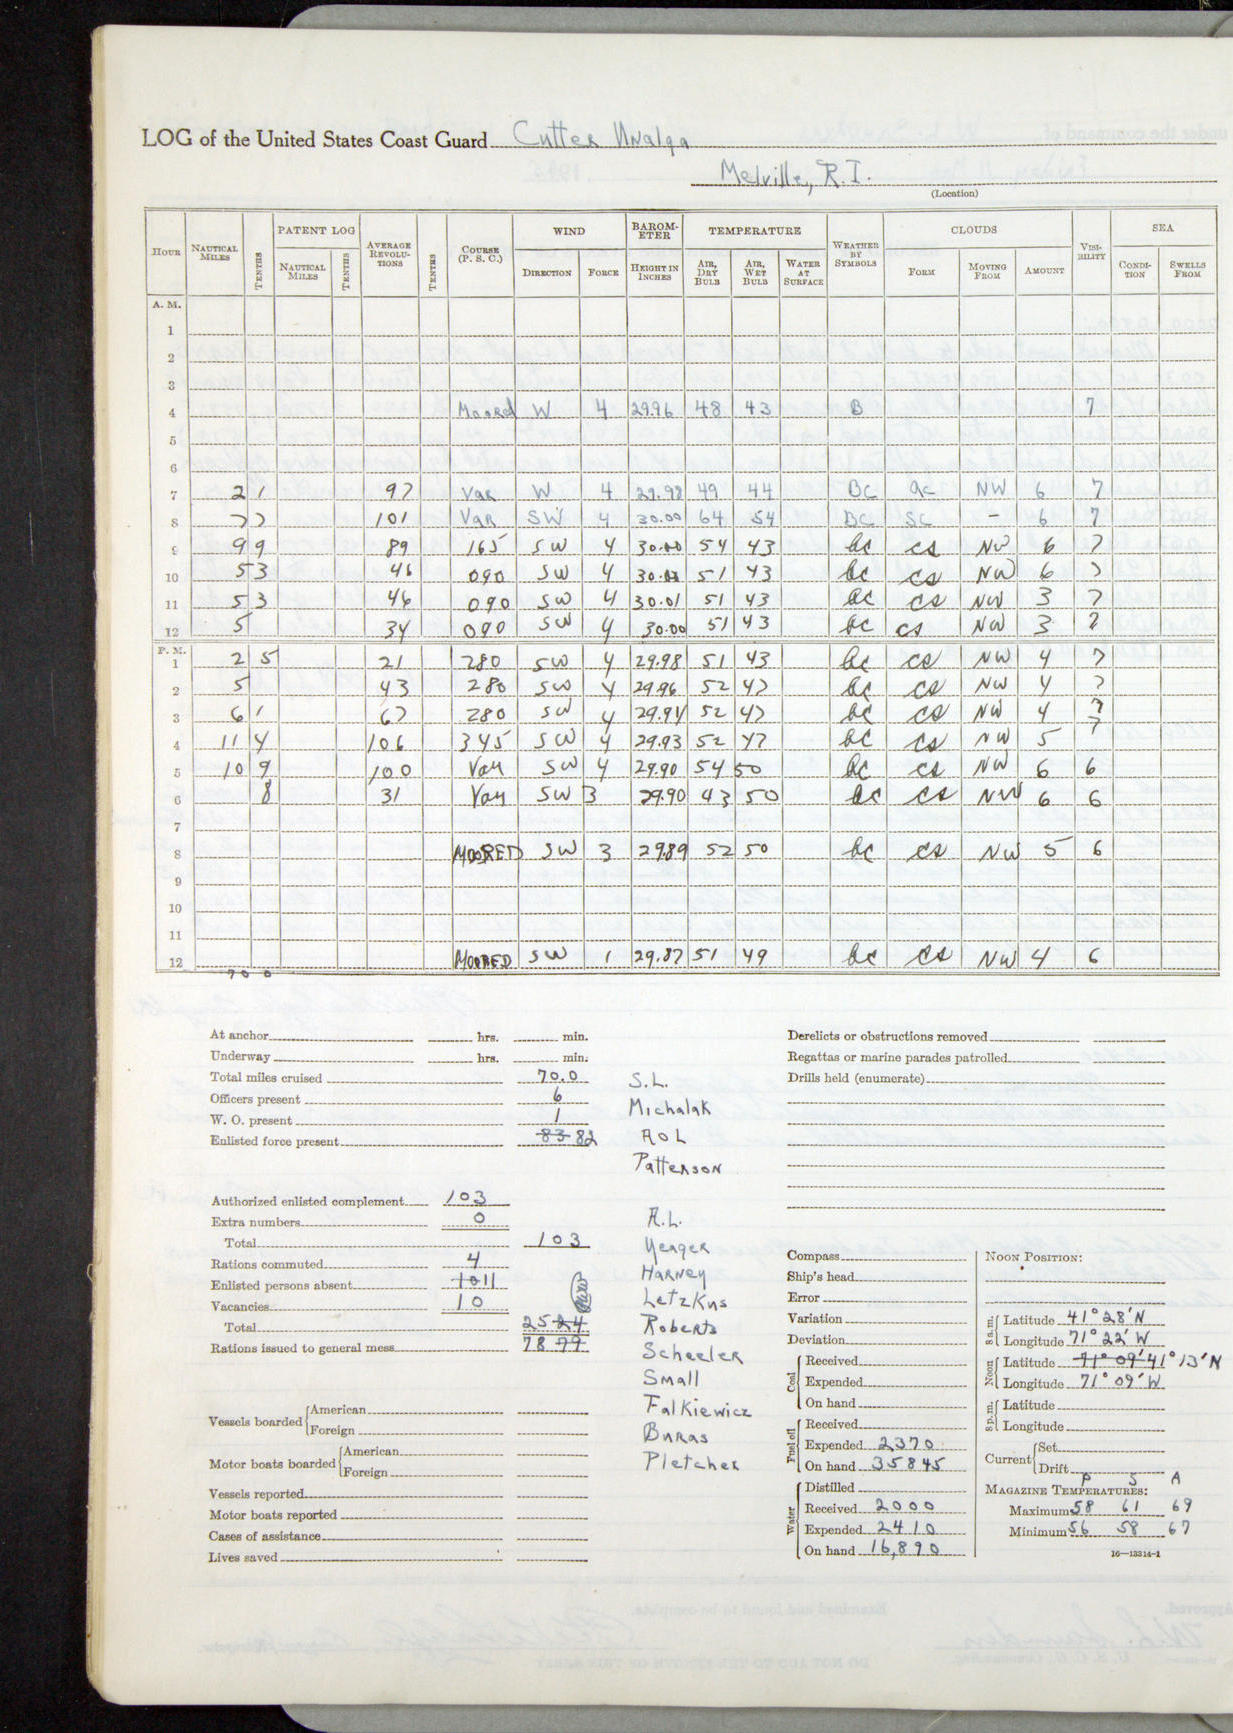 LOG of the United States Coast Guard Cutter Unalga
Melville, R.I.
(Location)
HOUR NAUTICAL MILES TENTHS PATENT LOG NAUTICAL MILES TENTHS AVERAGE REVOLUTIONS TENTHS COURSE (P. S. C.) WIND DIRECTION FORCE BAROMETER HEIGHT IN INCHES TEMPERATURE AIR, DRY BULB AIR, WET BULB WATER AT SURFACE WEATHER BY SYMBOLS CLOUDS FORM MOVING FROM AMOUNT VISIBILITY SEA CONDITION SWELLS FROM
A. M.
1
2
3
4 Moored W 4 29.96 48 43 B 7
5
6
7 2 1 97 Var W 4 29.98 49 44 BC ac NW 6 7
8 7 7 101 Var SW 4 30.00 64 54 BC SC - 6 7
9 9 9 89 165 SW 4 30.00 54 43 bc cs NW 6 7
10 5 3 46 090 SW 4 51 43 bc cs NW 6 7
11 5 3 46 090 SW 4 30.01 51 43 bc cs NW 3 7
12 5 34 090 SW 4 30.00 51 43 bc cs NW 3 7
P. M.
1 2 5 21 280 SW 4 29.98 51 43 bc cs NW 4 7
2 5 43 280 SW 4 29.96 52 47 bc cs NW 4 7
3 6 1 67 280 SW 4 29.94 52 47 bc cs NW 4 7
4 11 4 106 345 SW 4 29.93 52 47 bc cs NW 5 7
5 10 9 100 Var SW 4 29.90 54 50 bc cs NW 6 6
6 8 31 Var SW 3 29.90 43 50 bc cs NW 6 6
7
8 MOORED SW 3 2989 52 50 bc cs NW 5 6
9
10
11
12 MOORED SW 1 29.87 51 49 bc cs NW 4 6
70 0
At anchor hrs. min.
Underway hrs. min.
Total miles cruised 70.0
Officers present 6
W. O. present 1
Enlisted force present 83 82
Authorized enlisted complement 103
Extra numbers 0
Total 103
Rations commuted 4
Enlisted persons absent 10 11
Vacancies 10
Total 25 24
Rations issued to general mess 78 79
Vessels boarded American
Foreign
Motor boats boarded American
Foreign
Vessels reported
Motor boats reported
Cases of assistance
Lives saved
S.L.
Michalak
AOL
Patterson
A.L.
Yerger
Harney
Letzkus
Roberts
Scheeler
Small
Falkiewicz
Buras
Pletcher
Derelicts or obstructions removed
Regattas or marine parades patrolled
Drills held (enumerate)
Compass
Ship's head
Error
Variation
Deviation
Coal Received
Expended
On hand
Fuel oil Received
Expended 2370
On hand 35845
Water Distilled
Received 2000
Expended 2410
On hand 16,890
NOON POSITION:
8 a.m. Latitude 41° 28' N
Longitude 71° 22' W
Noon Latitude 71° 09' 41° 13' N
Longitude 71° 09' W
8 p.m. Latitude
Longitude
Current Set
Drift
P S A
MAGAZINE TEMPERATURES:
Maximum 58 61 69
Minimum 56 58 67
16—13314-1